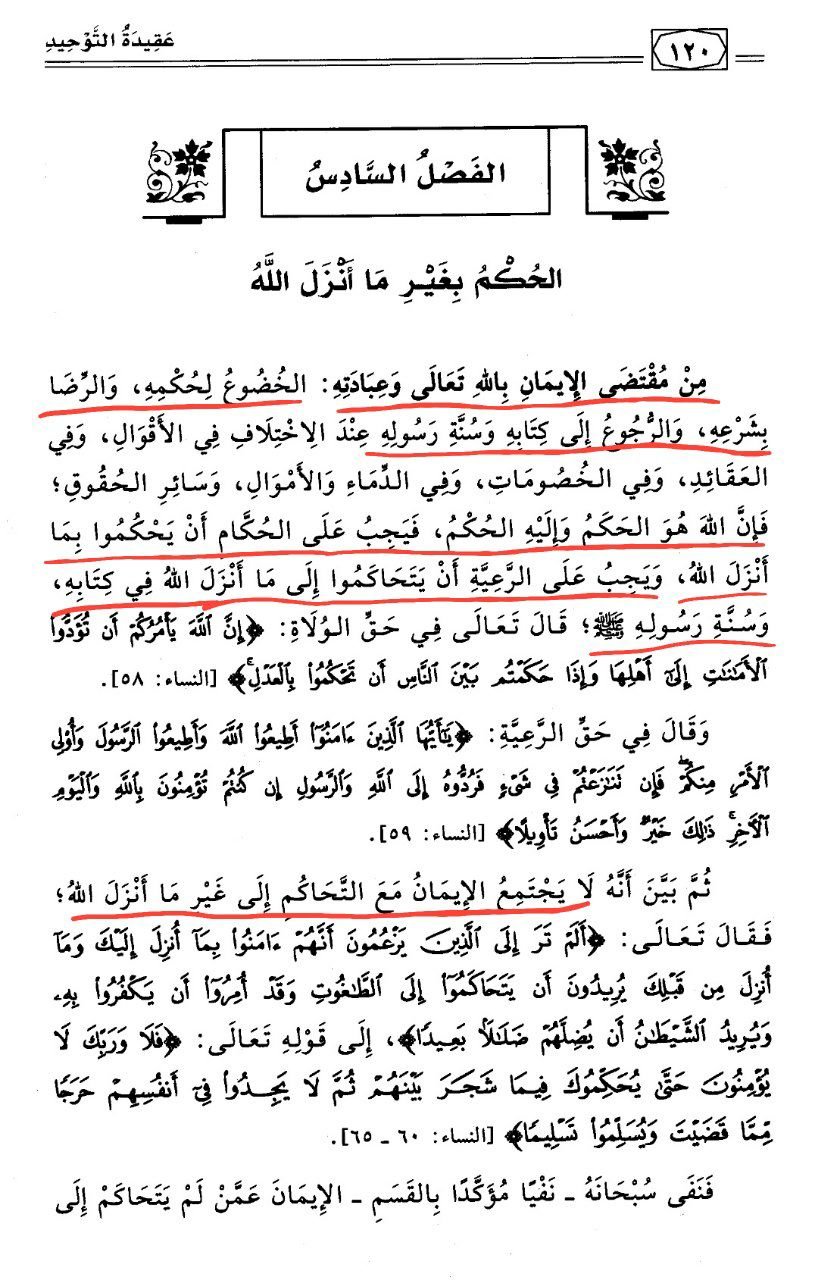 عَقِيدَةُ التَّوْحِيدِ
١٢٠
الفَصْلُ السَّادِسُ
الحُكْمُ بِغَيْرِ مَا أَنْزَلَ اللَّهُ
مِنْ مُقْتَضَى الإِيمَانِ بِاللهِ تَعَالَى وَعِبَادَتِهِ: الخُضُوعُ لِحُكْمِهِ، وَالرِّضَا
بِشَرْعِهِ، وَالرُّجُوعُ إِلَى كِتَابِهِ وَسُنَّةِ رَسُولِهِ عِنْدَ الِاخْتِلَافِ فِي الأَقْوَالِ، وَفِي
العَقَائِدِ، وَفِي الخُصُومَاتِ، وَفِي الدِّمَاءِ وَالأَمْوَالِ، وَسَائِرِ الحُقُوقِ؛
فَإِنَّ اللهَ هُوَ الحَكَمُ وَإِلَيْهِ الحُكْمُ، فَيَجِبُ عَلَى الحُكَّامِ أَنْ يَحْكُمُوا بِمَا
أَنْزَلَ اللهُ، وَيَجِبُ عَلَى الرَّعِيَّةِ أَنْ يَتَحَاكَمُوا إِلَى مَا أَنْزَلَ اللهُ فِي كِتَابِهِ،
وَسُنَّةِ رَسُولِهِ ﷺ؛ قَالَ تَعَالَى فِي حَقِّ الوُلَاةِ: ﴿إِنَّ ٱللَّهَ يَأْمُرُكُمْ أَن تُؤَدُّوا۟
ٱلْأَمَـٰنَـٰتِ إِلَىٰٓ أَهْلِهَا وَإِذَا حَكَمْتُم بَيْنَ ٱلنَّاسِ أَن تَحْكُمُوا۟ بِٱلْعَدْلِ﴾ [النساء: ٥٨].
وَقَالَ فِي حَقِّ الرَّعِيَّةِ: ﴿يَـٰٓأَيُّهَا ٱلَّذِينَ ءَامَنُوٓا۟ أَطِيعُوا۟ ٱللَّهَ وَأَطِيعُوا۟ ٱلرَّسُولَ وَأُو۟لِى
ٱلْأَمْرِ مِنكُمْ فَإِن تَنَـٰزَعْتُمْ فِى شَىْءٍ فَرُدُّوهُ إِلَى ٱللَّهِ وَٱلرَّسُولِ إِن كُنتُمْ تُؤْمِنُونَ بِٱللَّهِ وَٱلْيَوْمِ
ٱلْـَٔاخِرِ ذَٰلِكَ خَيْرٌ وَأَحْسَنُ تَأْوِيلًا﴾ [النساء: ٥٩].
ثُمَّ بَيَّنَ أَنَّهُ لَا يَجْتَمِعُ الإِيمَانُ مَعَ التَّحَاكُمِ إِلَى غَيْرِ مَا أَنْزَلَ اللهُ؛
فَقَالَ تَعَالَى: ﴿أَلَمْ تَرَ إِلَى ٱلَّذِينَ يَزْعُمُونَ أَنَّهُمْ ءَامَنُوا۟ بِمَآ أُنزِلَ إِلَيْكَ وَمَآ
أُنزِلَ مِن قَبْلِكَ يُرِيدُونَ أَن يَتَحَاكَمُوٓا۟ إِلَى ٱلطَّـٰغُوتِ وَقَدْ أُمِرُوٓا۟ أَن يَكْفُرُوا۟ بِهِۦ
وَيُرِيدُ ٱلشَّيْطَـٰنُ أَن يُضِلَّهُمْ ضَلَـٰلًۢا بَعِيدًا﴾، إِلَى قَوْلِهِ تَعَالَى: ﴿فَلَا وَرَبِّكَ لَا
يُؤْمِنُونَ حَتَّىٰ يُحَكِّمُوكَ فِيمَا شَجَرَ بَيْنَهُمْ ثُمَّ لَا يَجِدُوا۟ فِىٓ أَنفُسِهِمْ حَرَجًا
مِّمَّا قَضَيْتَ وَيُسَلِّمُوا۟ تَسْلِيمًا﴾ [النساء: ٦٠ ـ ٦٥].
فَنَفَى سُبْحَانَهُ ـ نَفْيًا مُؤَكَّدًا بِالقَسَمِ ـ الإِيمَانَ عَمَّنْ لَمْ يَتَحَاكَمْ إِلَى